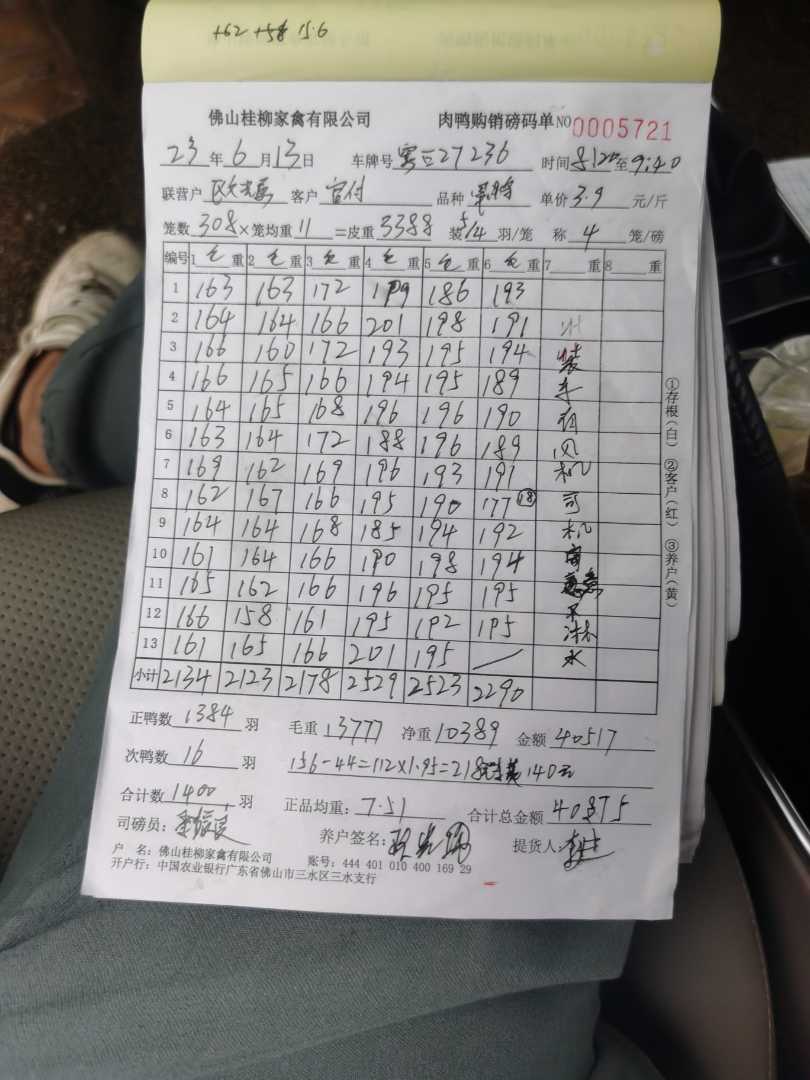 +62 +58 15.6
佛山桂柳家禽有限公司 肉鸭购销磅码单 NO 0005721
23年6月13日 车牌号 27236 时间 8:20至9:40
联营户 客户 品种 单价 3.9 元/斤
笼数 308×笼均重 11 =皮重 3388 装5/4羽/笼 称 4 笼/磅
编号 1毛重 2毛重 3毛重 4毛重 5毛重 6毛重 7 重 8 重
1 163 163 172 199 186 193
2 164 164 166 201 198 191
3 166 160 172 193 195 194 装
4 166 165 166 194 195 189 车
5 164 165 168 196 196 190 有
6 163 164 172 188 196 189 风
7 169 162 169 196 193 191 机
8 162 167 166 195 190 177 ⑱ 司
9 164 164 168 185 194 192 机
10 161 164 166 190 198 194
11 165 162 166 196 195 195 意
12 166 158 161 195 192 195 不淋
13 161 165 166 201 195 / 水
小计 2134 2123 2178 2529 2523 2290
正鸭数 1384 羽 毛重 13777 净重 10389 金额 40517
次鸭数 16 羽 156-44=112×1.95=218 140元
合计数 1400 羽 正品均重: 7.51 合计总金额 40875
司磅员: 养户签名: 提货人:
户 名: 佛山桂柳家禽有限公司 账号: 444 401 010 400 169 29
开户行: 中国农业银行广东省佛山市三水区三水支行
①存根(白) ②客户(红) ③养户(黄)